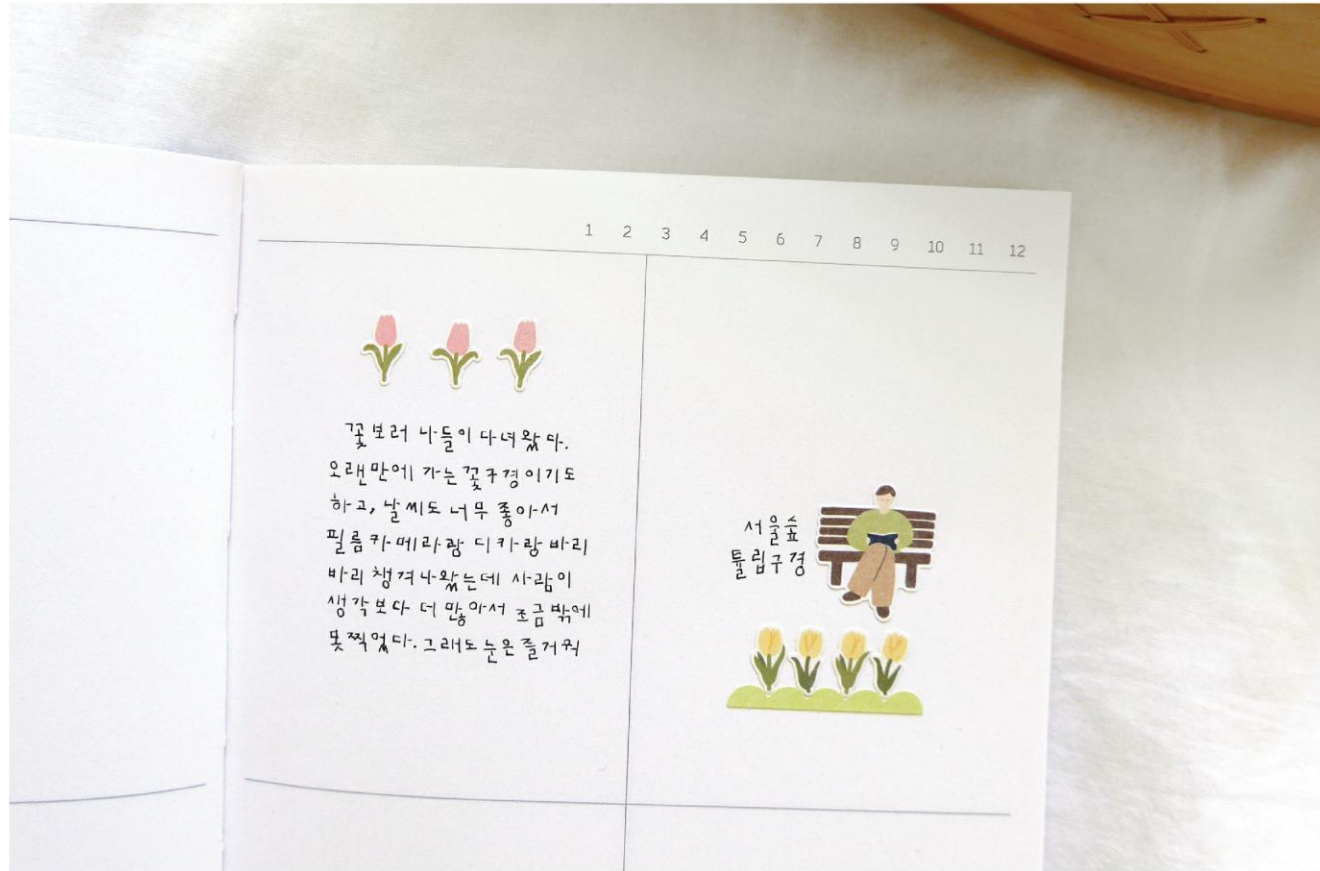 1 2 3 4 5 6 7 8 9 10 11 12
꽃보러 나들이 다녀왔다.
오랜만에 가는 꽃구경이기도
하고, 날씨도 너무 좋아서
필름카메라랑 디카랑 바리
바리 챙겨나왔는데 사람이
생각보다 더 많아서 조금밖에
못찍었다. 그래도 눈은 즐거워
서울숲
튤립구경